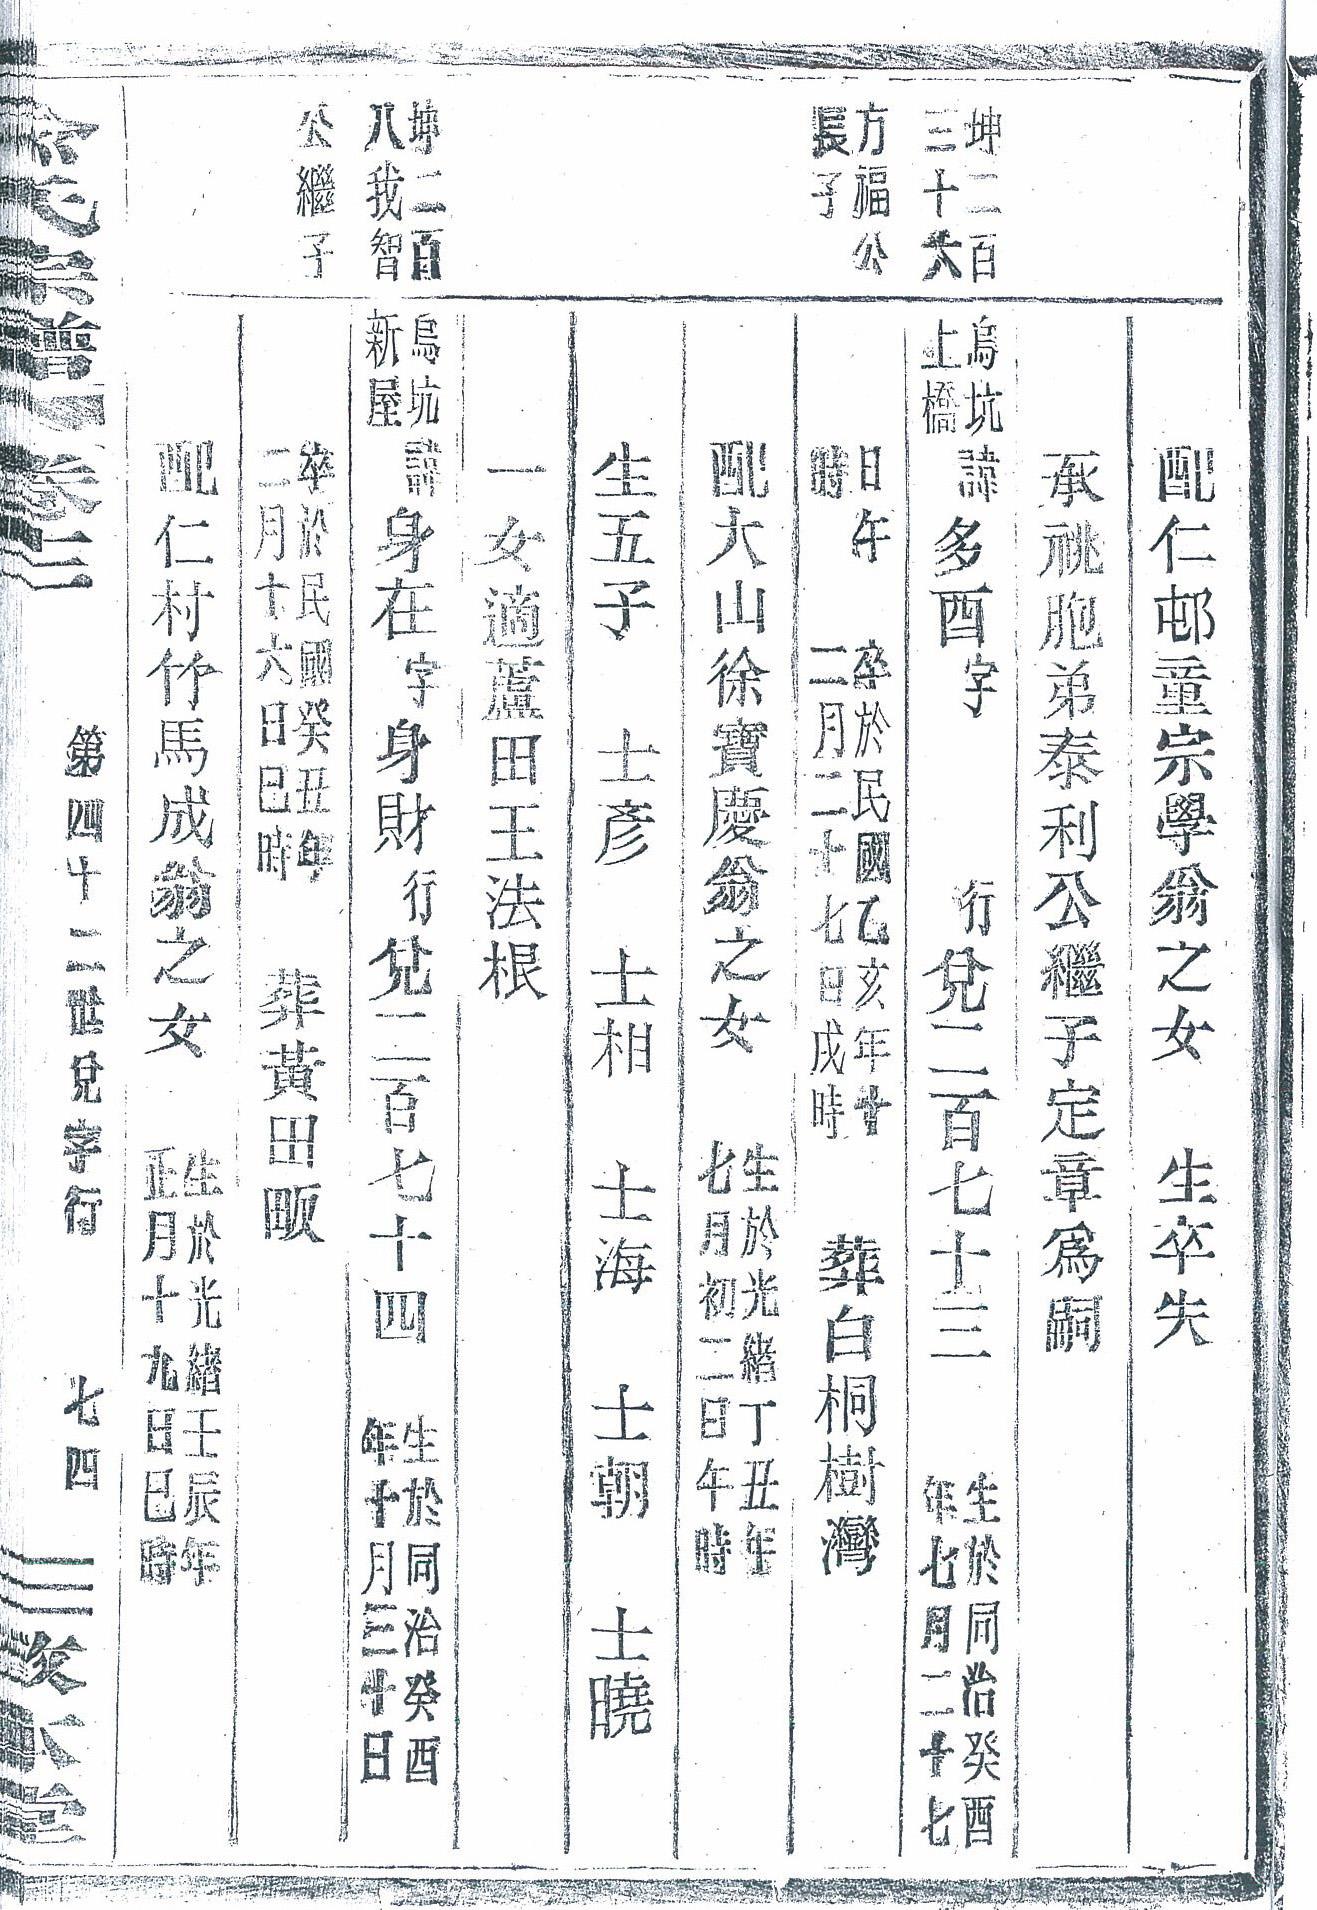 配仁邨童宗學翁之女 生卒失
承祧胞弟泰利公繼子定章爲嗣
坤二百
三十六
烏坑
上橋
諱多酉字 行兌二百七十三
生於同治癸酉
年七月二十七
方福公
長子
日午
時
卒於民國乙亥年十
二月二十七日戌時
葬白桐樹灣
配大山徐寶慶翁之女
生於光緒丁丑年
七月初二日午時
生五子 士彥 士相 士海 士朝 士曉
一女適蘆田王法根
坤二百
八我智
烏坑
新屋
諱身在字身財行兌二百七十四
生於同治癸酉
年十月三十日
公繼子
卒於民國癸丑年
二月十六日巳時
葬黃田畈
配仁村竹馬成翁之女
生於光緒壬辰年
正月十九日巳時
氏宗譜 卷三
第四十二世兌字行 七四
本堂